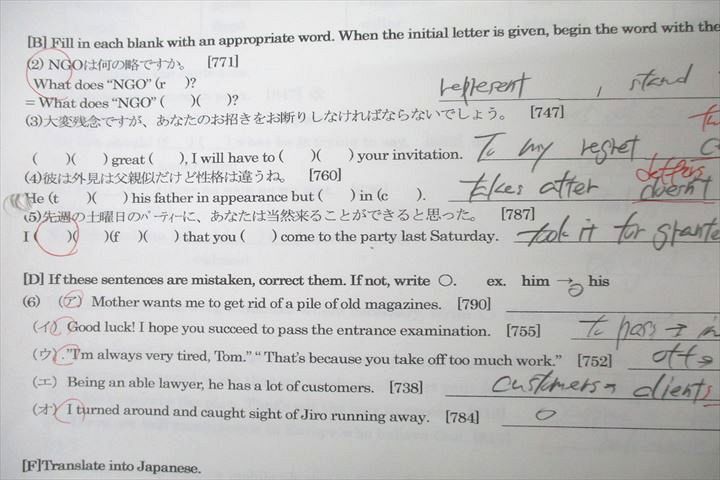 [B] Fill in each blank with an appropriate word. When the initial letter is given, begin the word with the
(2) NGOは何の略ですか。 [771]
What does "NGO" (r )? represent , stand
= What does "NGO" ( )( )?
(3)大変残念ですが、あなたのお招きをお断りしなければならないでしょう。 [747]
( )( ) great ( ), I will have to ( )( ) your invitation. To my regret
(4)彼は外見は父親似だけど性格は違うね。 [760] differs
He (t )( ) his father in appearance but ( ) in (c ). takes after doesn't
(5)先週の土曜日のパーティーに、あなたは当然来ることができると思った。 [787]
I ( )( )(f )( ) that you ( ) come to the party last Saturday. took it for grante
[D] If these sentences are mistaken, correct them. If not, write ○. ex. him → his
(6) (ア) Mother wants me to get rid of a pile of old magazines. [790] ○
(イ) Good luck! I hope you succeed to pass the entrance examination. [755] to pass → in
(ウ) "I'm always very tired, Tom." "That's because you take off too much work." [752] off →
(エ) Being an able lawyer, he has a lot of customers. [738] customers → clients
(オ) I turned around and caught sight of Jiro running away. [784] ○
[F]Translate into Japanese.